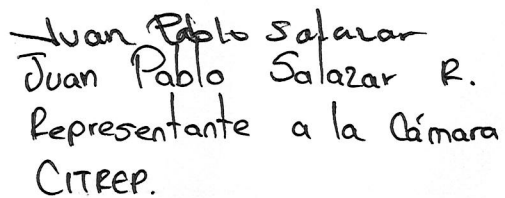 Juan Pablo Salazar
Juan Pablo Salazar R.
Representante a la Cámara
CITREP.